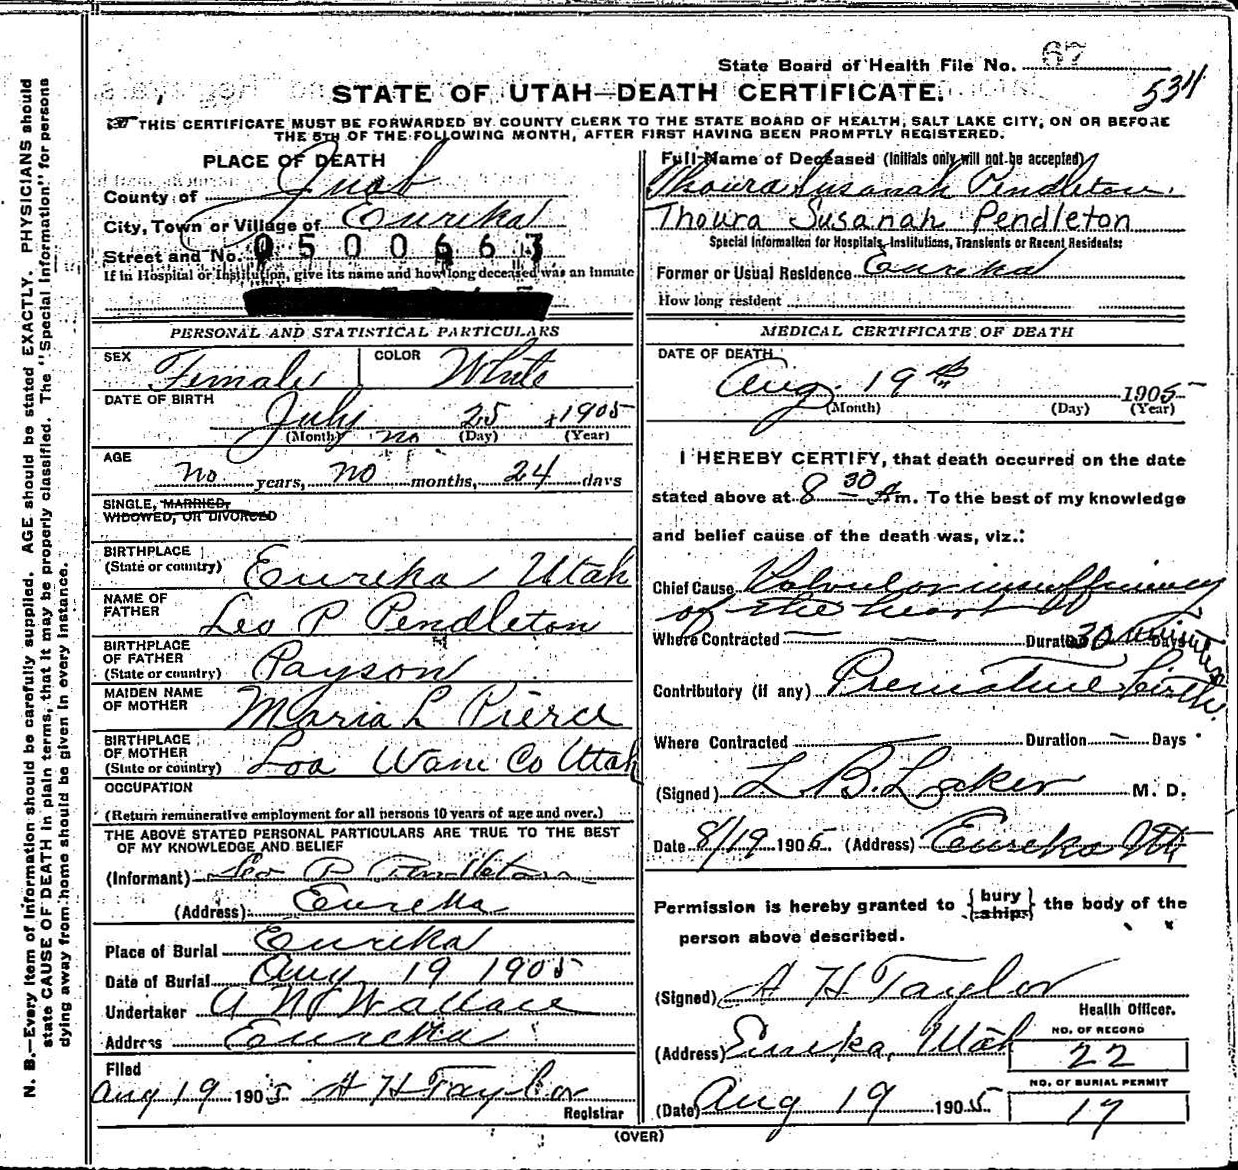 State Board of Health File No. 67
534
STATE OF UTAH—DEATH CERTIFICATE.
THIS CERTIFICATE MUST BE FORWARDED BY COUNTY CLERK TO THE STATE BOARD OF HEALTH, SALT LAKE CITY, ON OR BEFORE
THE 5TH OF THE FOLLOWING MONTH, AFTER FIRST HAVING BEEN PROMPTLY REGISTERED.
PLACE OF DEATH
County of Juab
City, Town or Village of Eureka
Street and No. 0500663
If in Hospital or Institution, give its name and how long deceased was an inmate
PERSONAL AND STATISTICAL PARTICULARS
SEX Female COLOR White
DATE OF BIRTH
July 25 1905
(Month) no (Day) (Year)
AGE
no years, no months, 24 days
SINGLE, MARRIED,
WIDOWED, OR DIVORCED
BIRTHPLACE
(State or country) Eureka Utah
NAME OF
FATHER Leo P Pendleton
BIRTHPLACE
OF FATHER
(State or country) Payson
MAIDEN NAME
OF MOTHER Maria L Pierce
BIRTHPLACE
OF MOTHER
(State or country) Loa Wane Co Utah
OCCUPATION
(Return remunerative employment for all persons 10 years of age and over.)
THE ABOVE STATED PERSONAL PARTICULARS ARE TRUE TO THE BEST
OF MY KNOWLEDGE AND BELIEF
(Informant) Leo P Pendleton
(Address) Eureka
Place of Burial Eureka
Date of Burial Aug 19 1905
Undertaker A N Wallace
Address Eureka
Filed
Aug 19 1905 A H Taylor
Registrar
Full Name of Deceased (Initials only will not be accepted)
Thoura Susanah Pendleton.
Thoura Susanah Pendleton
Special Information for Hospitals, Institutions, Transients or Recent Residents:
Former or Usual Residence Eureka
How long resident
MEDICAL CERTIFICATE OF DEATH
DATE OF DEATH
Aug. 19th 1905
(Month) (Day) (Year)
I HEREBY CERTIFY, that death occurred on the date
stated above at 8 30 A m. To the best of my knowledge
and belief cause of the death was, viz.:
Chief Cause Valvular insufficiency
of the heart
Where Contracted — — Duration 30 minutes Days
Contributory (if any) Premature birth.
Where Contracted — Duration — Days
(Signed) L B Laker M. D.
Date 8/19 1905 (Address) Eureka Ut
Permission is hereby granted to {bury / ship} the body of the
person above described.
(Signed) A H Taylor
Health Officer.
(Address) Eureka, Utah
NO. OF RECORD
22
NO. OF BURIAL PERMIT
17
(Date) Aug 19 1905
(OVER)
N. B.—Every item of information should be carefully supplied. AGE should be stated EXACTLY. PHYSICIANS should
state CAUSE OF DEATH in plain terms, that it may be properly classified. The "Special Information" for persons
dying away from home should be given in every instance.